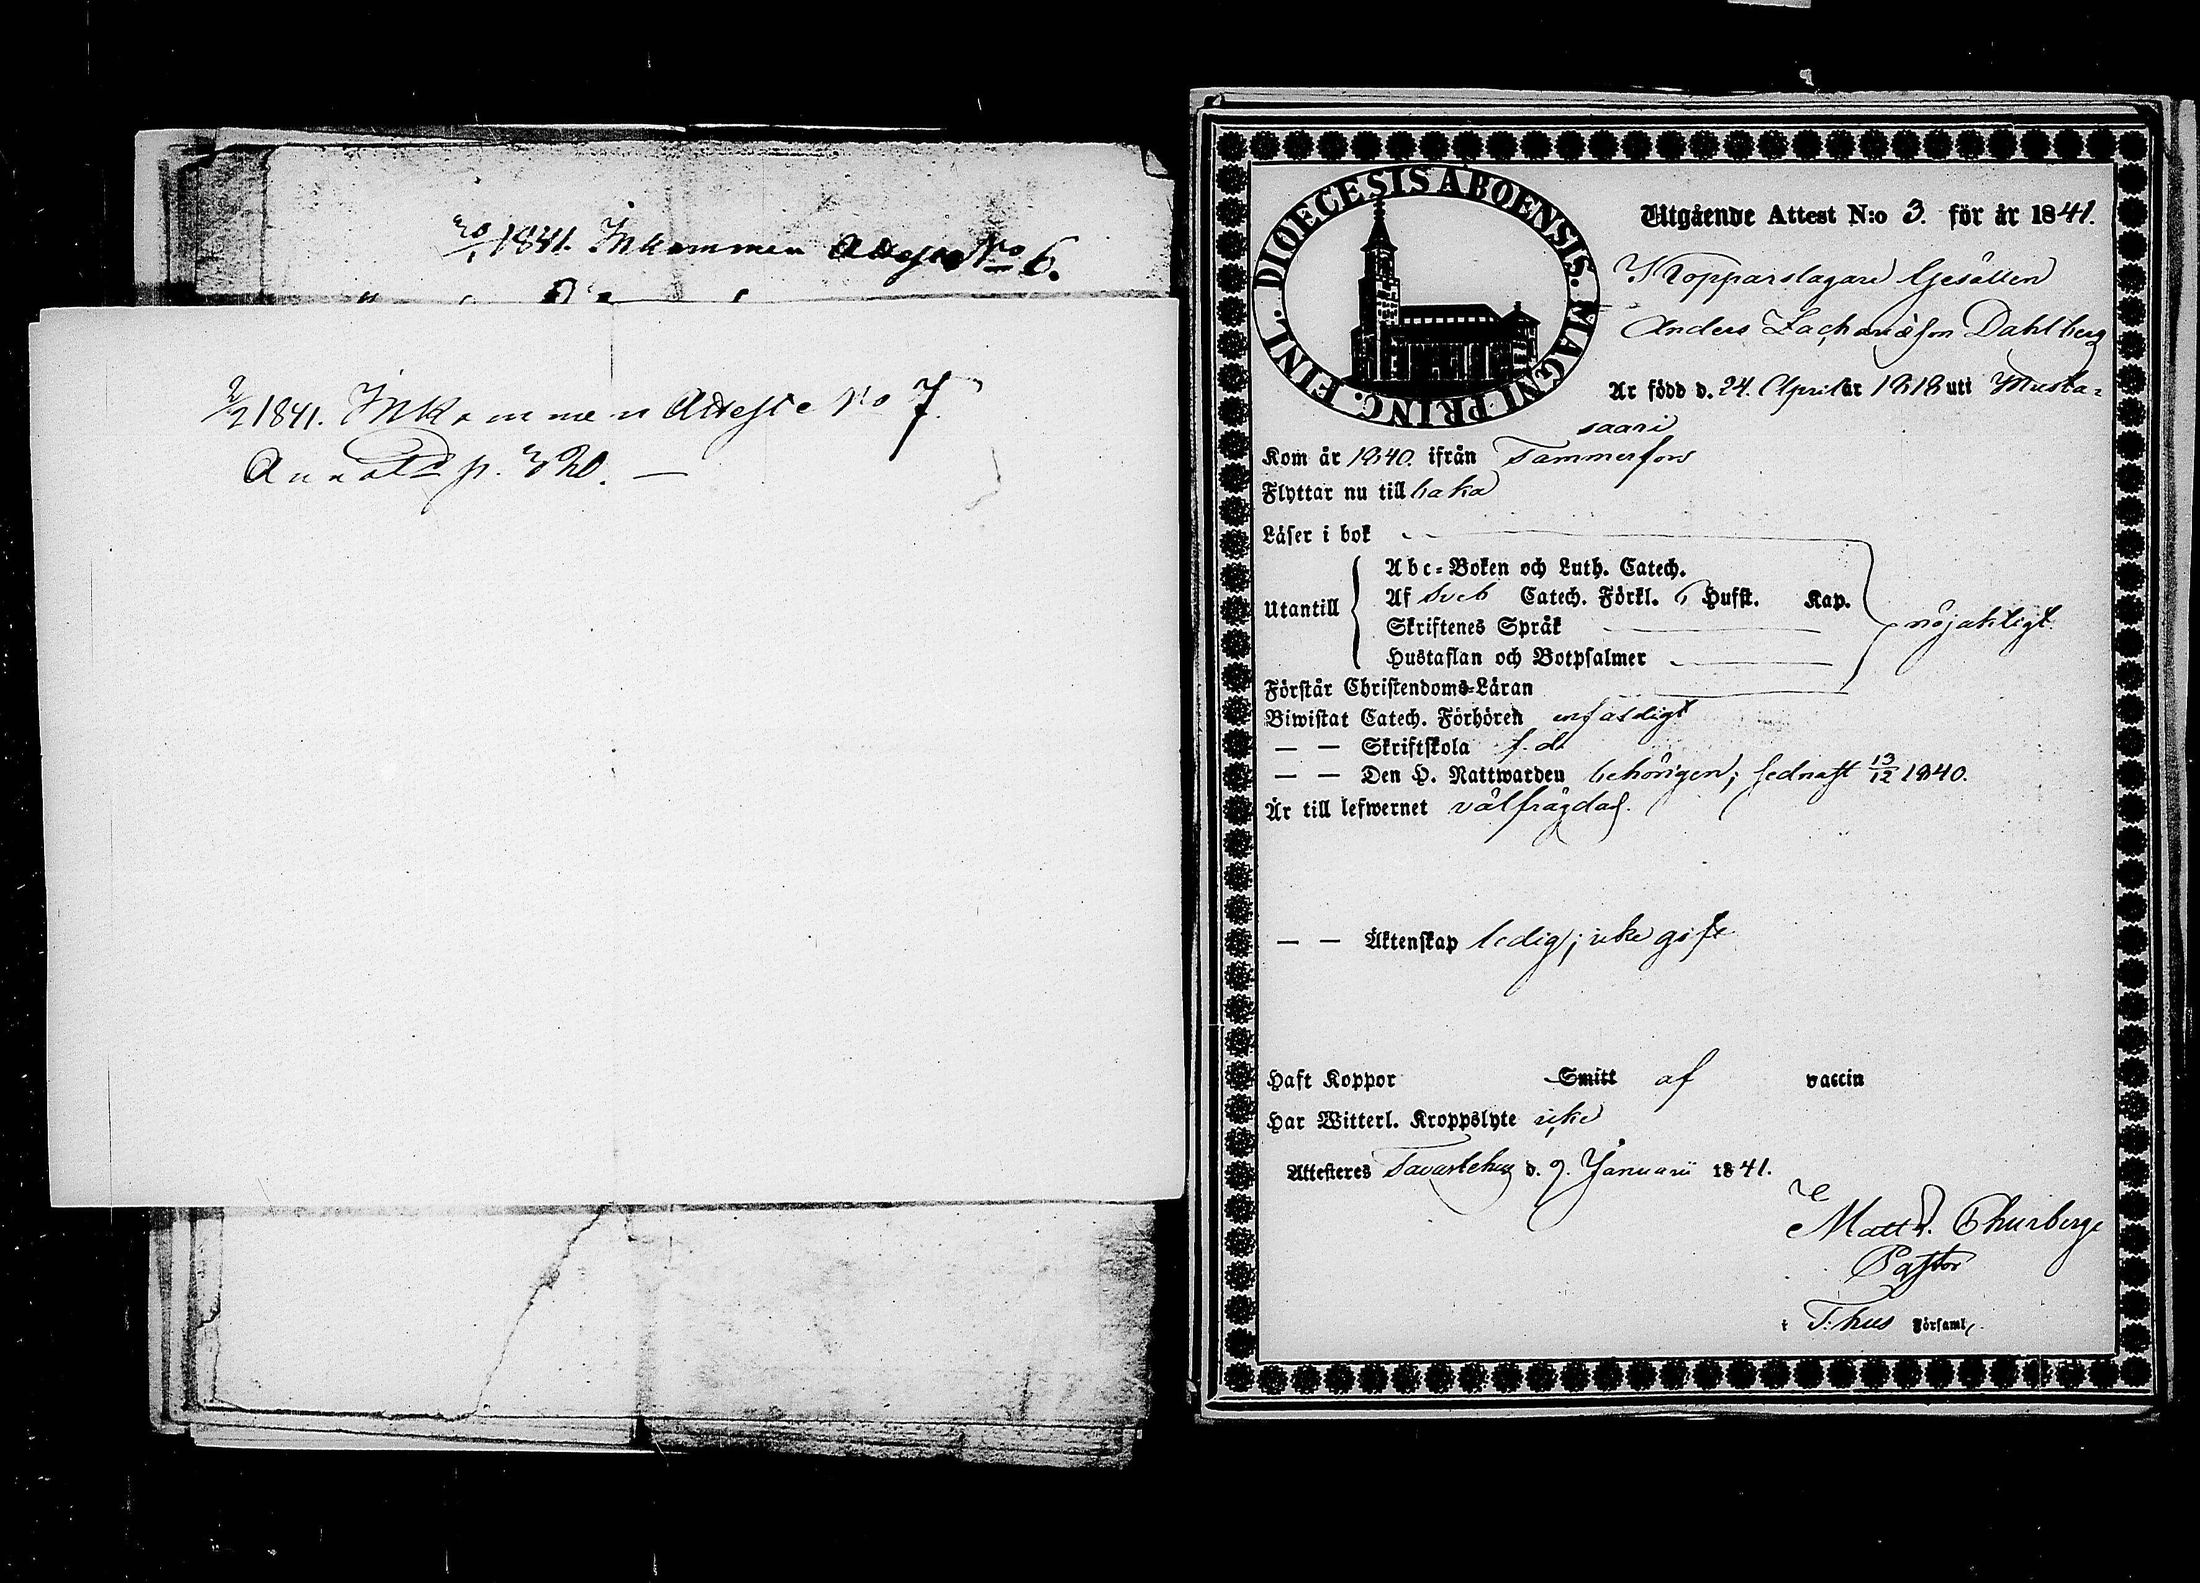 20/1 1841. Inkommen Attest No 6.
2/2 1841. Inkommen Attest No 7.
Annot. p. 320. —
DIOECESIS ÅBOENSIS. MAGNI PRINC. FINL.
Utgående Attest N:o 3. för år 1841.
Kopparslagare Gesällen
Anders Zachariæson Dahlberg
Är född d. 24. April år 1818 uti Musta-
saari
Kom år 1840. ifrån Tammerfors
Flyttar nu tillbaka
Läser i bok
Abc-Boken och Luth. Catech.
Utantill Af Sveb Catech. Förkl. 6 Hufst. Kap. nöjaktigt
Skriftenes Språk
Hustaflan och Botpsalmer
Förstår Christendoms-Läran
Biwistat Catech. Förhören
— — Skriftskola f. d.
— — Den H. Nattwarden behörigen; sednast 13/12 1840.
Är till lefwernet välfrägdad.
— — Äktenskap ledig; icke gift
Haft Koppor Smitt af vaccin
Har Witterl. Kroppslyte icke
Attesteres Tavastehus d. 9. Januarii 1841.
Matt. Thurberg
Pastor
i T:hus Församl.